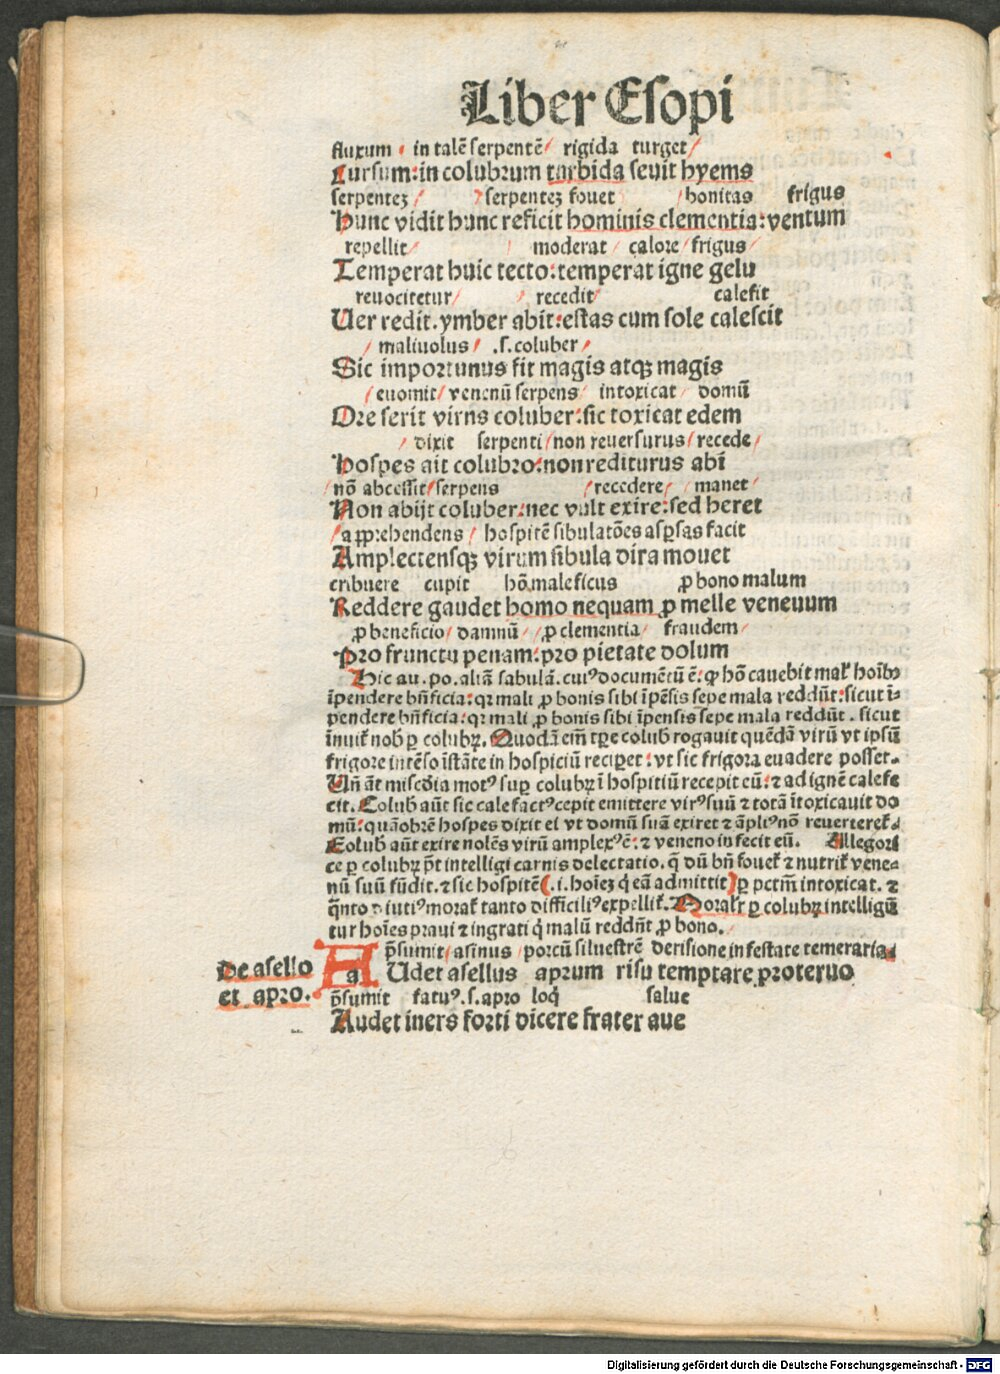 Liber Esopi
fluxum in talē serpentē rigida turget
Cursum: in colubrum turbida seuit hyems
serpentez serpentez fouet bonitas frigus
Hunc vidit hunc reficit hominis clementia: ventum
repellit moderat calore frigus
Temperat huic tecto: temperat igne gelu
reuocitetur recedit calefit
Uer redit. ymber abit: estas cum sole calescit
maliuolus .s. coluber
Sic importunus fit magis atqꝫ magis
euomit venenū serpens intoxicat domū
Ore serit virus coluber: sic toxicat edem
dixit serpenti non reuersurus recede
Hospes ait colubro: non rediturus abi
nō abcessit serpens recedere manet
Non abijt coluber: nec vult exire: sed heret
apprehendens hospitē sibulatōes asp̄sas facit
Amplectensqꝫ virum sibula dira mouet
tribuere cupit hō maleficus ꝓ bono malum
Reddere gaudet homo nequam ꝓ melle venenum
ꝓ beneficio damnū ꝓ clementia fraudem
Pro frunctu penam: pro pietate dolum
Hic au. po. aliā fabulā. cuiꝰ documētū ē: ꝙ hō cauebit mal' hoībꝰ
īpendere bn̄ficia: qꝛ mali ꝓ bonis sibi īpēsis sepe mala reddūt: sicut ī⸗
pendere bn̄ficia: qꝛ mali ꝓ bonis sibi īpensis sepe mala reddūt. sicut
īnuit nob̄ ꝑ colubꝝ. Quodā em̄ tp̄e colub' rogauit quēdā virū vt ipsū
frigore intēso īstāte in hospiciū reciꝑet: vt sic frigora euadere posset.
Un̄ āt misc̄dia motꝰ suꝑ colubꝝ ī hospitiū recepit eū: ⁊ ad ignē calefe
cit. Colub' aūt sic calefactꝰ cepit emittere virꝰ suū ⁊ totā ītoxicauit do
mū: quāobrē hospes dixit ei vt domū suā exiret ⁊ āpliꝰ nō reuerteret'.
Colub' aūt exire nolēs virū amplexꝰ ē: ⁊ veneno infecit eū. Allegori
ce ꝑ colubꝝ p̄t intelligi carnis delectatio. q̄ dū bn̄ fouet' ⁊ nutrit' vene⸗
nū suū fūdit. ⁊ sic hospitē (.i. hoīez q̇ eā admittit) ꝑ pctm̄ intoxicat. ⁊
q̄nto diutiꝰ morat' tanto difficiliꝰ expellit'. Moral'r ꝑ colubꝝ intelligū
tur hoīes praui ⁊ ingrati q̇ malū reddn̄t ꝓ bono.
p̄sumit asinus porcū siluestrē derisione infestate temeraria
De asello
et apro.
AUdet asellus aprum risu temptare proteruo
p̄sumit fatuꝰ .s. apro loq̇ salue
Audet iners forti dicere frater aue
Digitalisierung gefördert durch die Deutsche Forschungsgemeinschaft - DFG